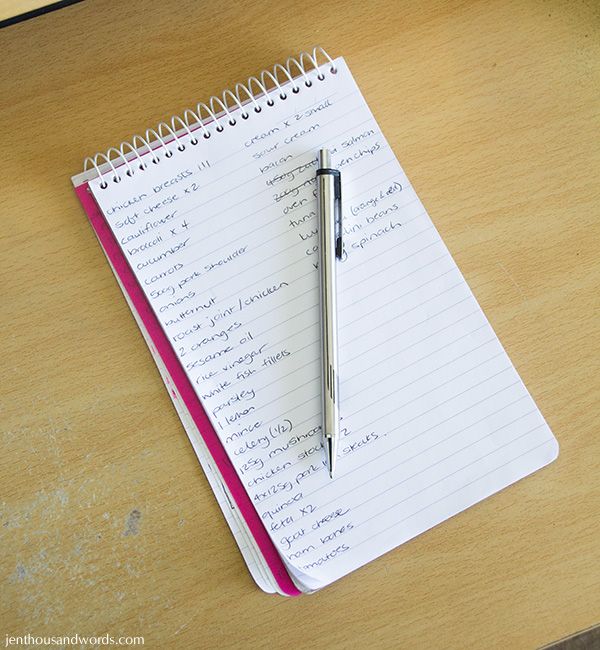 chicken breasts !!!
soft cheese x 2
cauliflower
broccoli x 4
cucumber
carrots
500g pork shoulder
onions
butternut
roast joint / chicken
2 oranges
sesame oil
rice vinegar
white fish fillets
parsley
1 lemon
mince
celery (1/2)
125g
chicken 2
4x125g pork steaks
quinoa
feta x2
goat cheese
ham bones
cream x 2 small
sour cream
bacon
salmon
chips
oven
tuna
(large & red)
beans
spinach
jenthousandwords.com